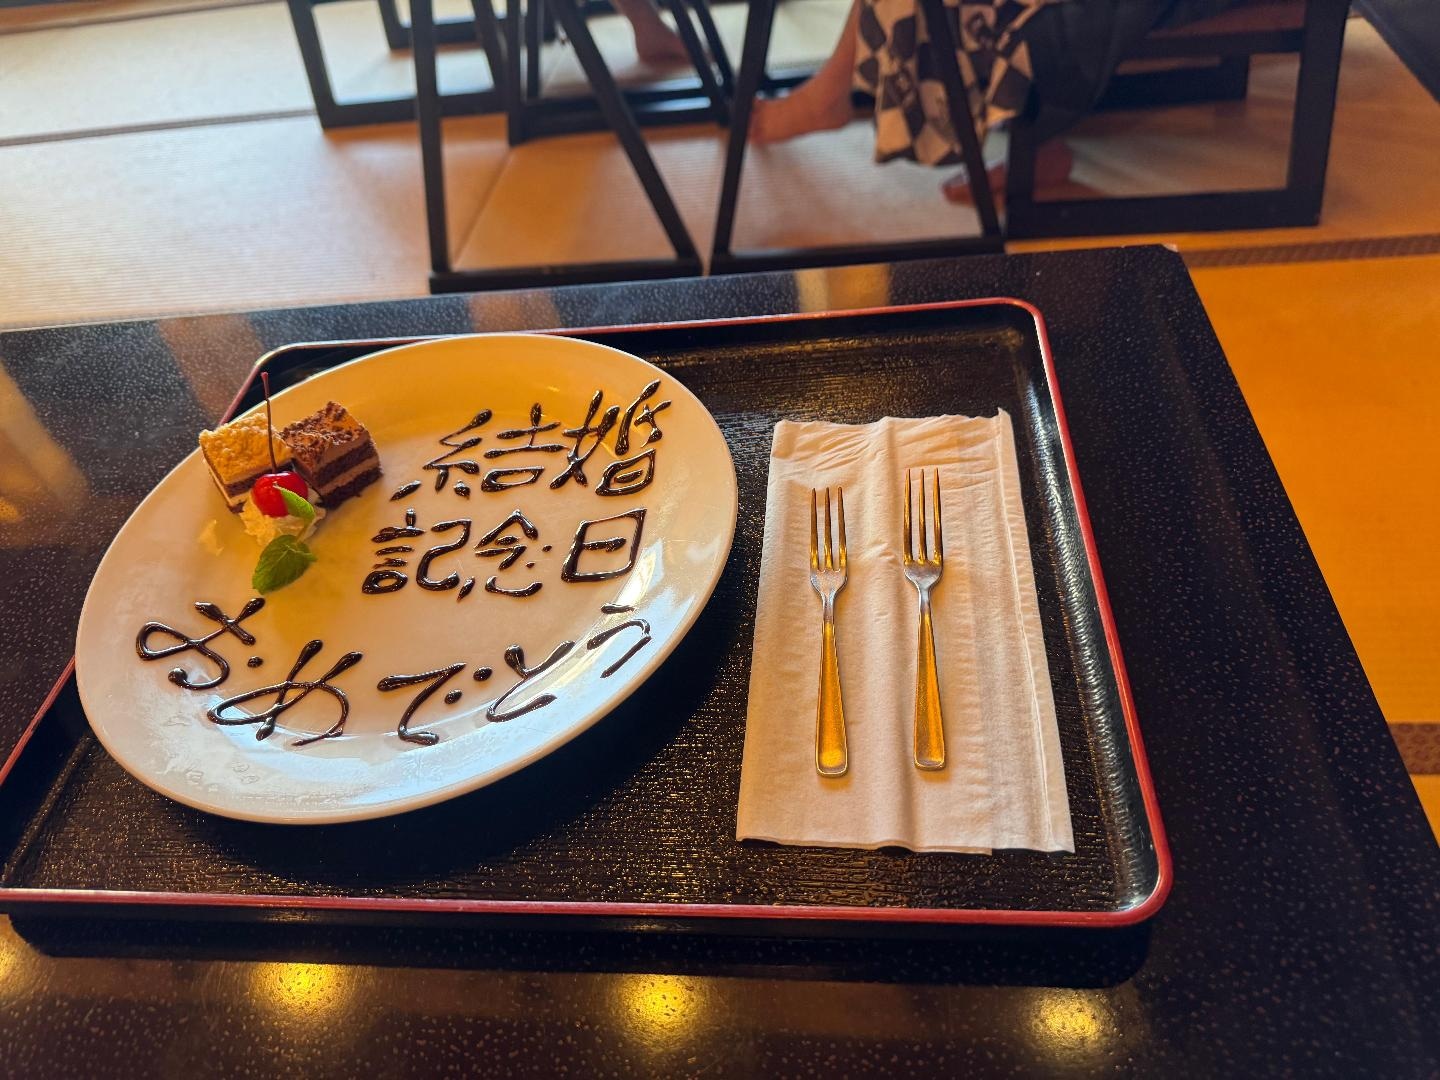 結婚
記念日
おめでとう